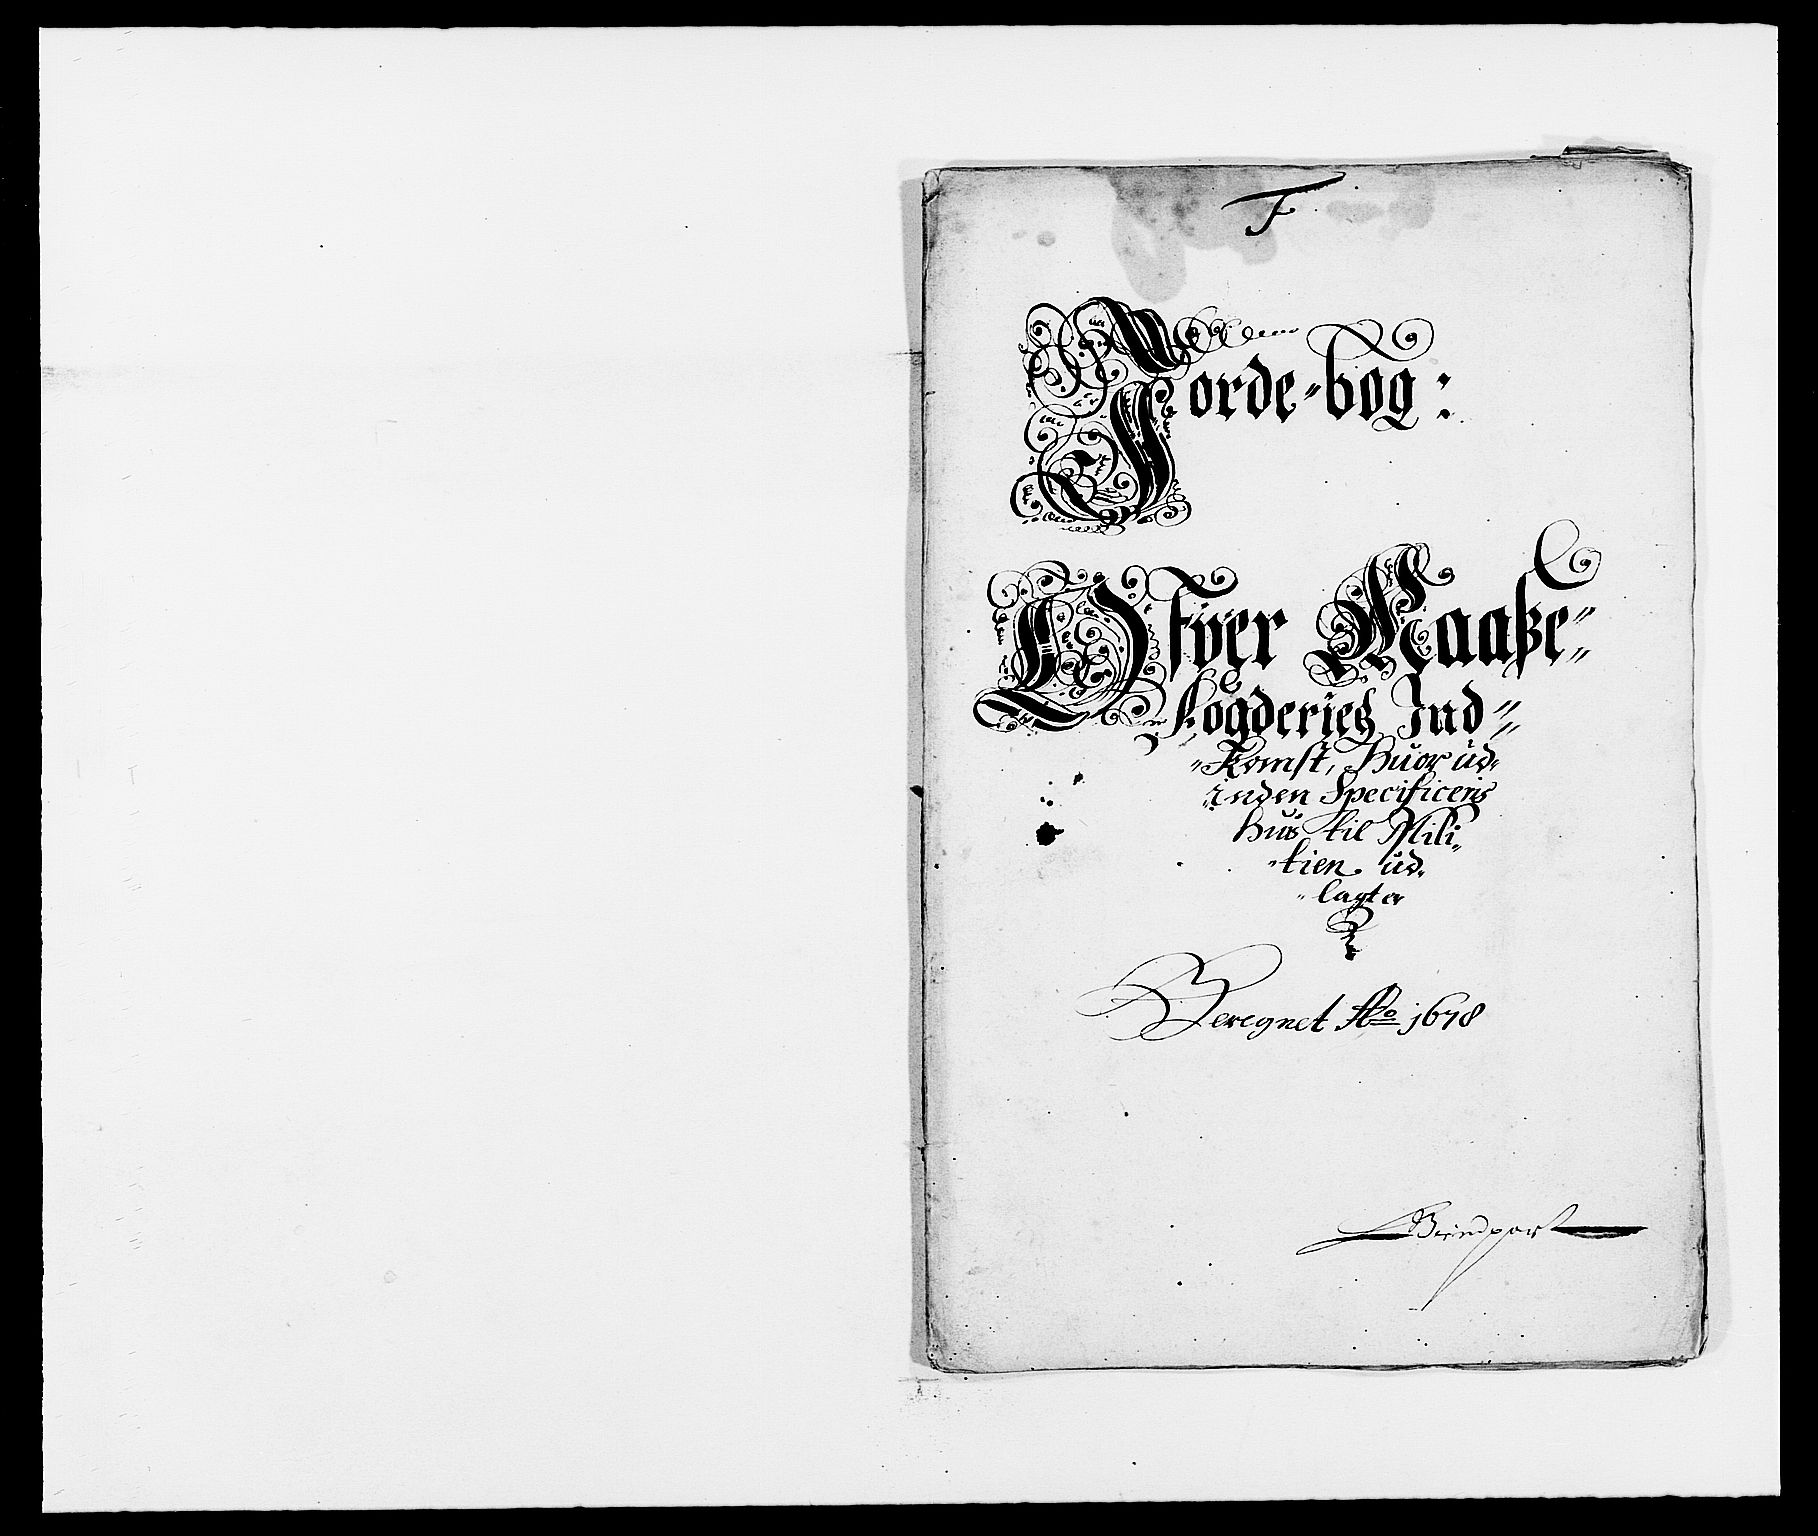 F
Jorde-bog:
Ofver Maaße-
fögderietz Ind-
komst, Huor ud-
inden Specificeris
huis til Mili-
tien ud-
lagt er
Beregnet Ao 1678